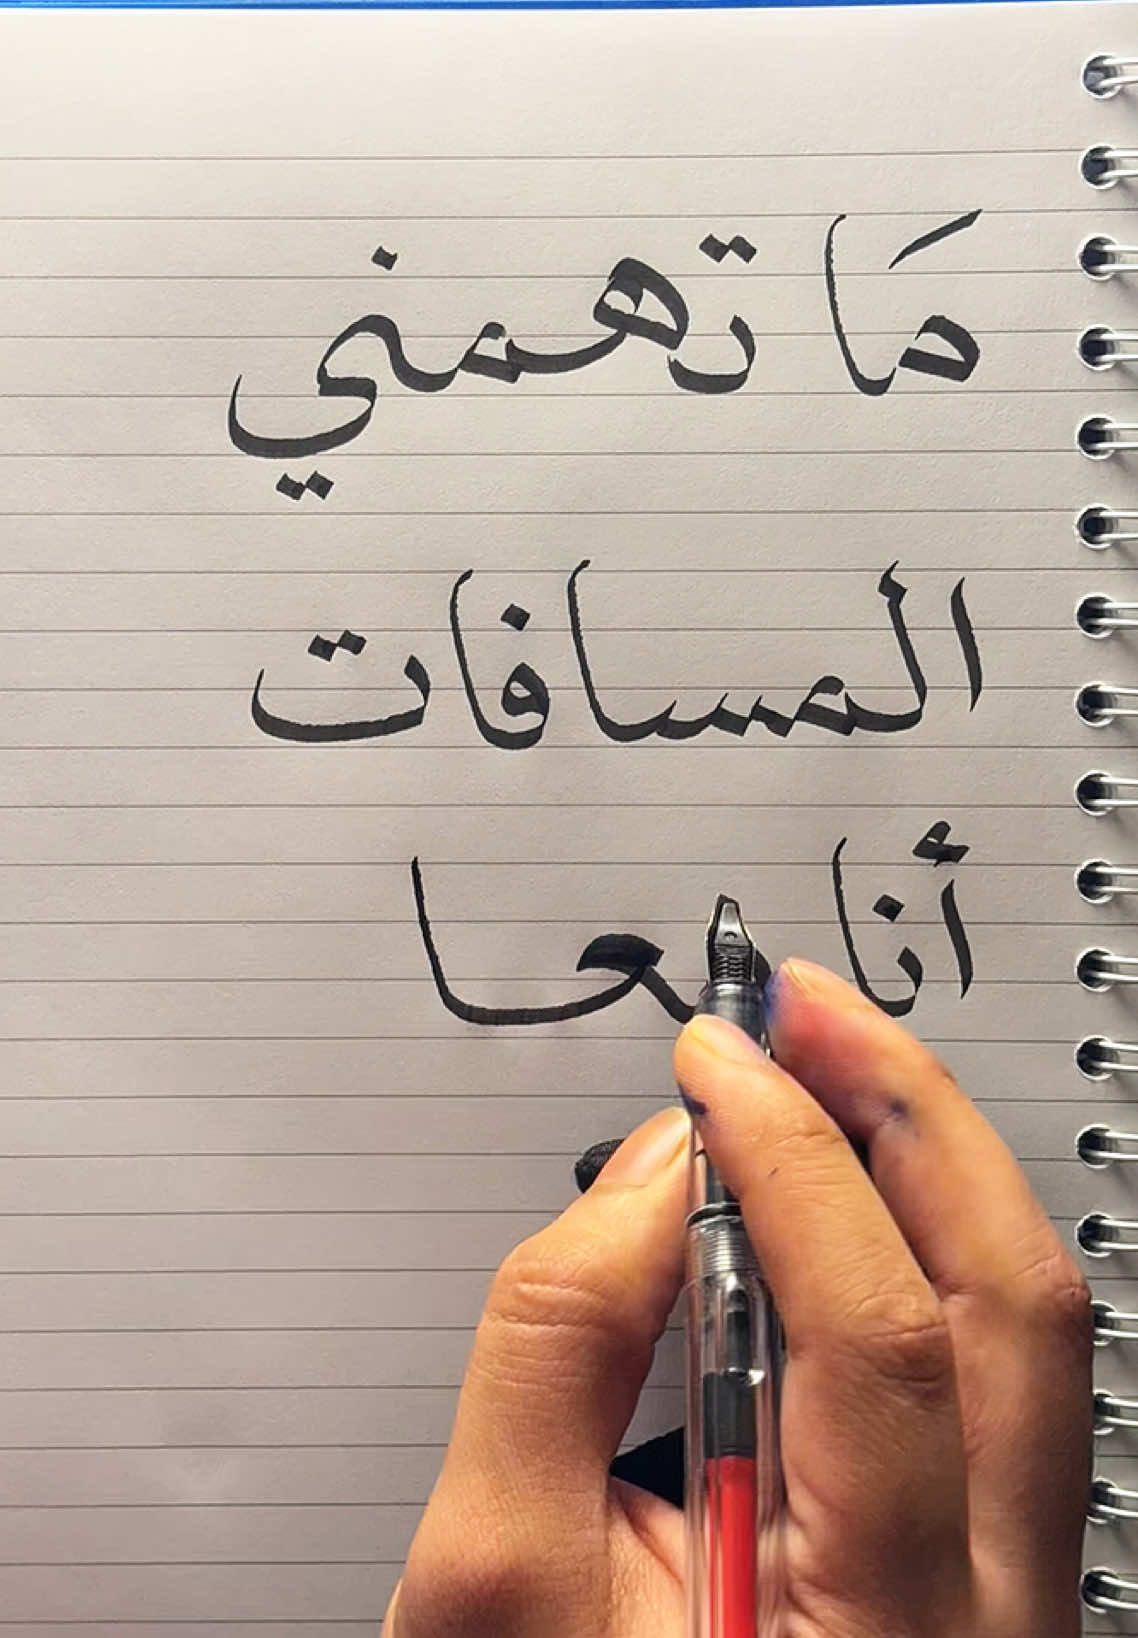 مَا تهمني
المسافات
أنا